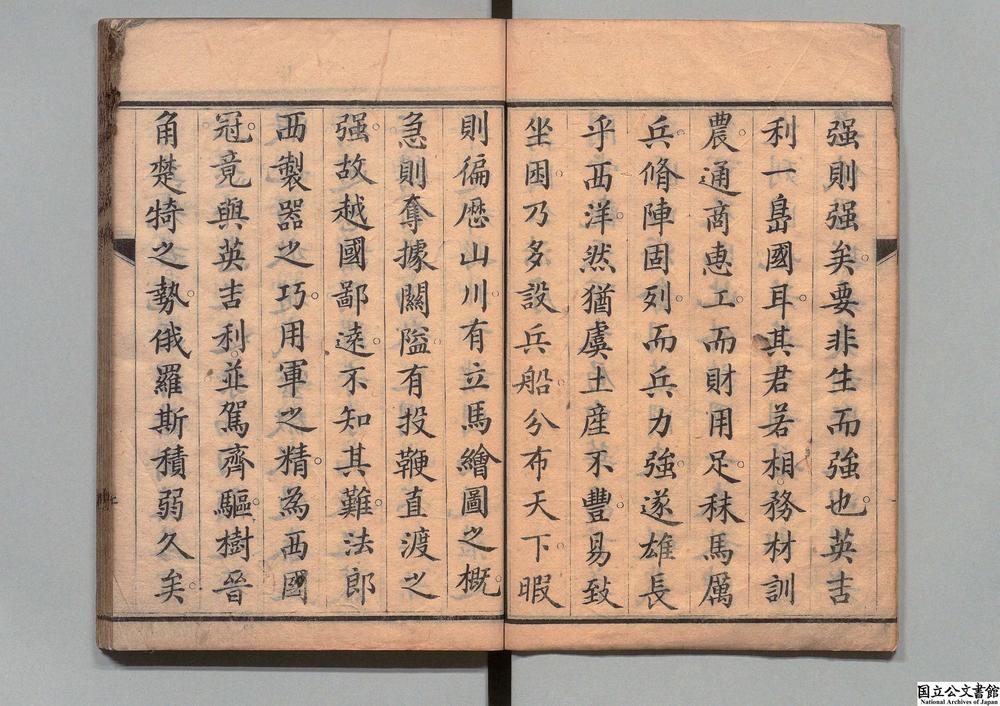 强則强矣。要非生而强也。英吉
利一㠀國耳。其君若相。務材訓
農。通商惠工。而財用足。秣馬厲
兵。脩陣固列。而兵力强。遂雄長
乎西洋。然猶虞土産不豐。易致
坐困。乃多設兵船。分布天下。暇
則徧歷山川。有立馬繪圖之概。
急則奪據關隘。有投鞭直渡之
强。故越國鄙遠。不知其難。法郎
西製器之巧。用軍之精。為西國
冠。竟與英吉利。並駕齊驅。樹晉
角楚犄之勢。俄羅斯積弱久矣。
国立公文書館
National Archives of Japan